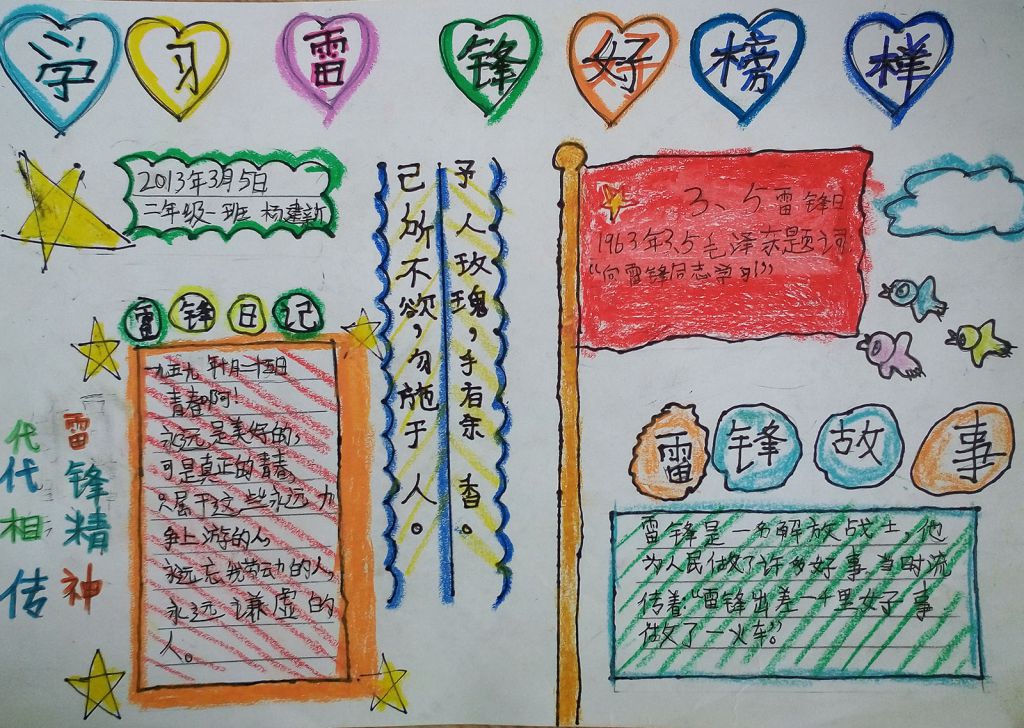 学习雷锋好榜样
2013年3月5日
二年级一班 杨建新
雷锋日记
一九五九年十月二十五日
青春啊!
永远是美好的,
可是真正的青春
只属于这些永远力
争上游的人
永远忘我劳动的人,
永远谦虚的
人。
雷锋精神
代代相传
予人玫瑰,手有余香。
己所不欲,勿施于人。
3、5雷锋日
1963年3.5毛泽东题词
“向雷锋同志学习”
雷锋故事
雷锋是一名解放战士,他
为人民做了许多好事当时流
传着“雷锋出差一千里好事
做了一火车”